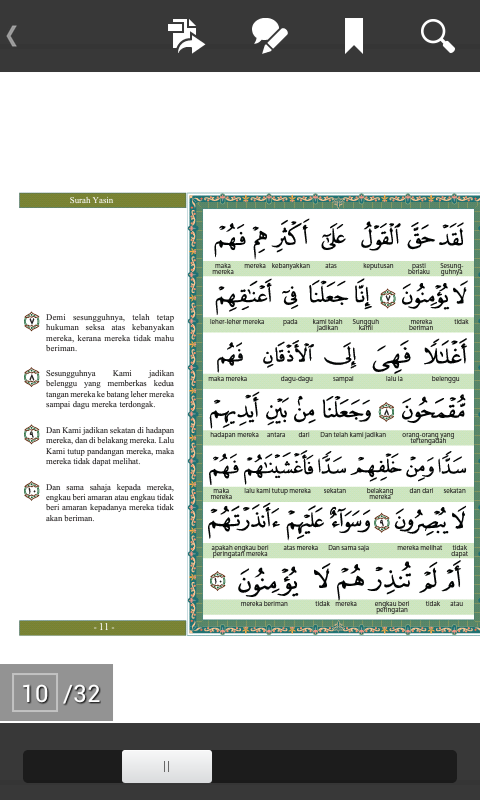 Surah Yasin
٧ Demi sesungguhnya, telah tetap
hukuman seksa atas kebanyakan
mereka, kerana mereka tidak mahu
beriman.
٨ Sesungguhnya Kami jadikan
belenggu yang memberkas kedua
tangan mereka ke batang leher mereka
sampai dagu mereka terdongak.
٩ Dan Kami jadikan sekatan di hadapan
mereka, dan di belakang mereka. Lalu
Kami tutup pandangan mereka, maka
mereka tidak dapat melihat.
١٠ Dan sama sahaja kepada mereka,
engkau beri amaran atau engkau tidak
beri amaran kepadanya mereka tidak
akan beriman.
- 11 -
لَقَدْ حَقَّ الْقَوْلُ عَلَىٰٓ أَكْثَرِهِمْ فَهُمْ
maka mereka mereka kebanyakkan atas keputusan pasti berlaku Sesung-guhnya
لَا يُؤْمِنُونَ ٧ إِنَّا جَعَلْنَا فِىٓ أَعْنَـٰقِهِمْ
leher-leher mereka pada kami telah jadikan Sungguh kami mereka beriman tidak
أَغْلَـٰلًا فَهِىَ إِلَى الْأَذْقَانِ فَهُم
maka mereka dagu-dagu sampai lalu ia belenggu
مُّقْمَحُونَ ٨ وَجَعَلْنَا مِنۢ بَيْنِ أَيْدِيهِمْ
hadapan mereka antara dari Dan telah kami jadikan orang-orang yang tertengadah
سَدًّا وَمِنْ خَلْفِهِمْ سَدًّا فَأَغْشَيْنَـٰهُمْ فَهُمْ
maka mereka lalu kami tutup mereka sekatan belakang mereka dan dari sekatan
لَا يُبْصِرُونَ ٩ وَسَوَآءٌ عَلَيْهِمْ ءَأَنذَرْتَهُمْ
apakah engkau beri peringatan mereka atas mereka Dan sama saja mereka melihat tidak dapat
أَمْ لَمْ تُنذِرْهُمْ لَا يُؤْمِنُونَ ١٠
mereka beriman tidak mereka engkau beri peringatan tidak atau
10 /32